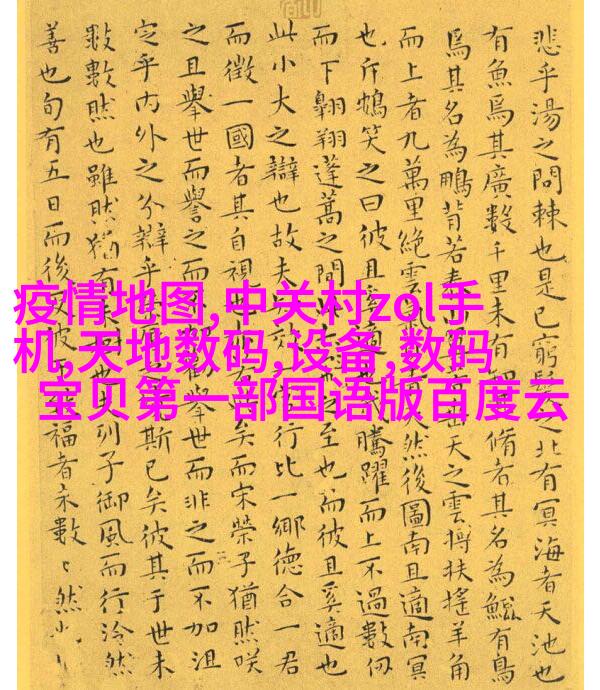 疫情地图,中关村zol手
机,天地数码,设备,数码
宝贝第一部国语版百度云
悲乎湯之問棘也是已窮髮之北有冥海者天池也
有魚焉其廣數千里未有脩者其名為鯤有鳥
焉其名為鵬背若天之雲摶扶搖羊角
而上者九萬里絕雲氣天然後圖南且適南冥
也斥鴳笑之曰彼且奚適騰躍而上不過數仞
而下翱翔蓬蒿之間之至也而彼且奚適也
此小大之辯也故夫行比一鄉德合一君
而徵一國者其自視矣而宋榮子猶然咲
之且舉世而譽之而舉世而非之而不加沮
定乎內外之分辯乎斯已矣彼其于世未
數數然也雖然猶有列子御風而行泠然
善也旬有五日而後反彼福者未數〻然也